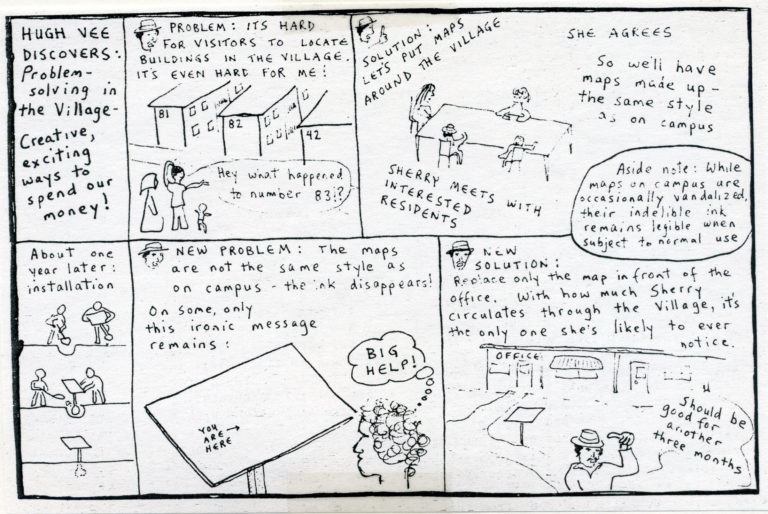 HUGH VEE
DISCOVERS:
Problem-
solving in
the Village-
Creative,
exciting
ways to
spend our
money!
PROBLEM: ITS HARD
FOR VISITORS TO LOCATE
BUILDINGS IN THE VILLAGE.
IT'S EVEN HARD FOR ME!
81
82
42
Hey what happened
to number 83!?
SOLUTION:
LET'S PUT MAPS
AROUND THE VILLAGE
SHERRY MEETS WITH
INTERESTED
RESIDENTS
SHE AGREES
So we'll have
maps made up-
the same style
as on campus
Aside note: While
maps on campus are
occasionally vandalized,
their indelible ink
remains legible when
subject to normal use
About one
year later:
installation
NEW PROBLEM: The maps
are not the same style as
on campus - the ink disappears!
On some, only
this ironic message
remains:
YOU →
ARE
HERE
BIG
HELP!
NEW
SOLUTION:
Replace only the map in front of the
office. With how much Sherry
circulates through the Village, it's
the only one she's likely to ever
notice.
OFFICE
Should be
good for
another
three months